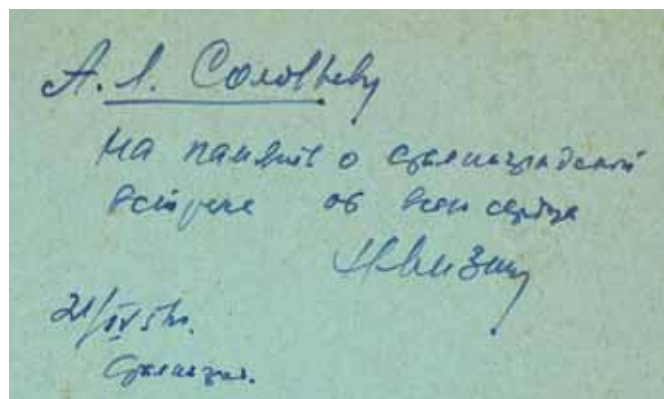 А. Л. Соловьеву
на память о сталинградской
встрече от всего сердца
21/IV
Сталинград.